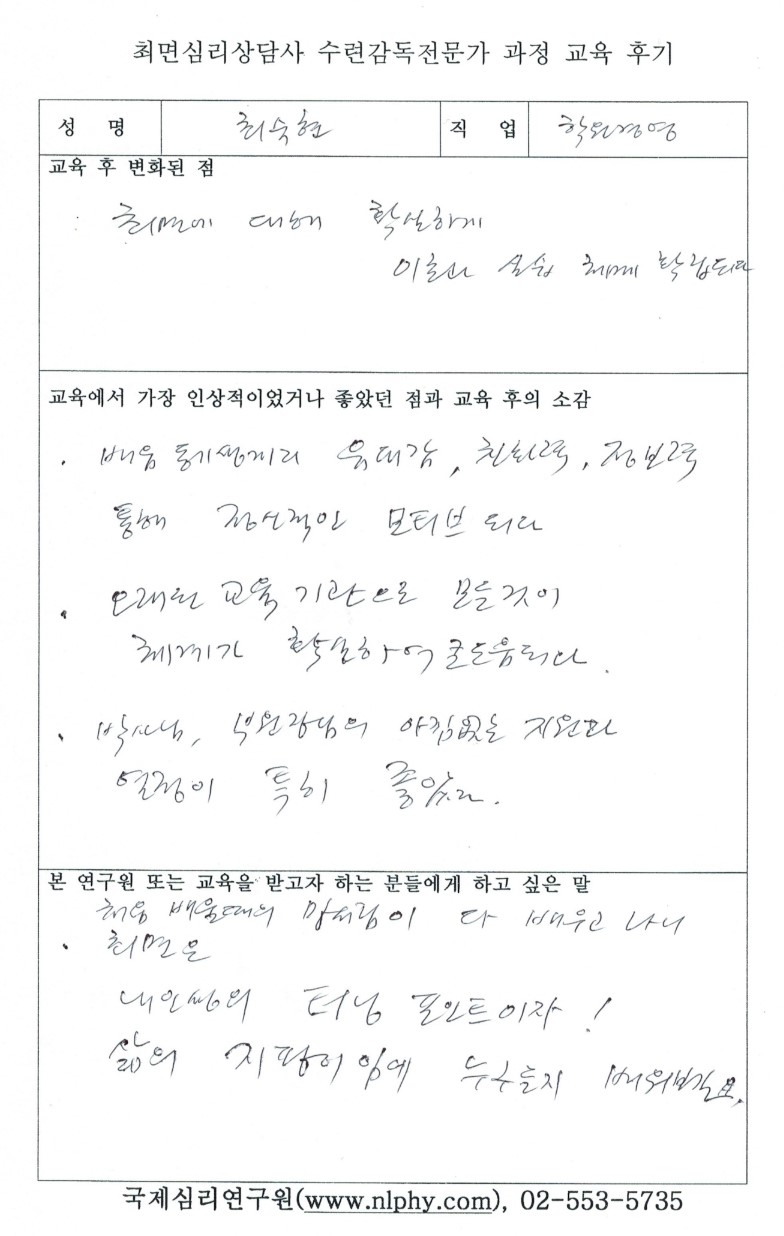 최면심리상담사 수련감독전문가 과정 교육 후기
성 명 최숙현 직 업 학원경영
교육 후 변화된 점
: 최면에 대해 확실하게
이론과 실습 체계 확립되다
교육에서 가장 인상적이었거나 좋았던 점과 교육 후의 소감
. 배움 동기생끼리 유대감, 친화력, 정보력
통해 정신적인 모티브 되다
. 오래된 교육 기관으로 모든것이
체계가 확실하여 큰도움되다.
. 박사님, 부원장님의 아낌없는 지원과
열정이 특히 좋았다.
본 연구원 또는 교육을 받고자 하는 분들에게 하고 싶은 말
처음 배울때의 망서림이 다 배우고 나니
. 최면은
내인생의 터닝 포인트이자!
삶의 지팡이임에 누구든지 배워보길요.
국제심리연구원(www.nlphy.com), 02-553-5735